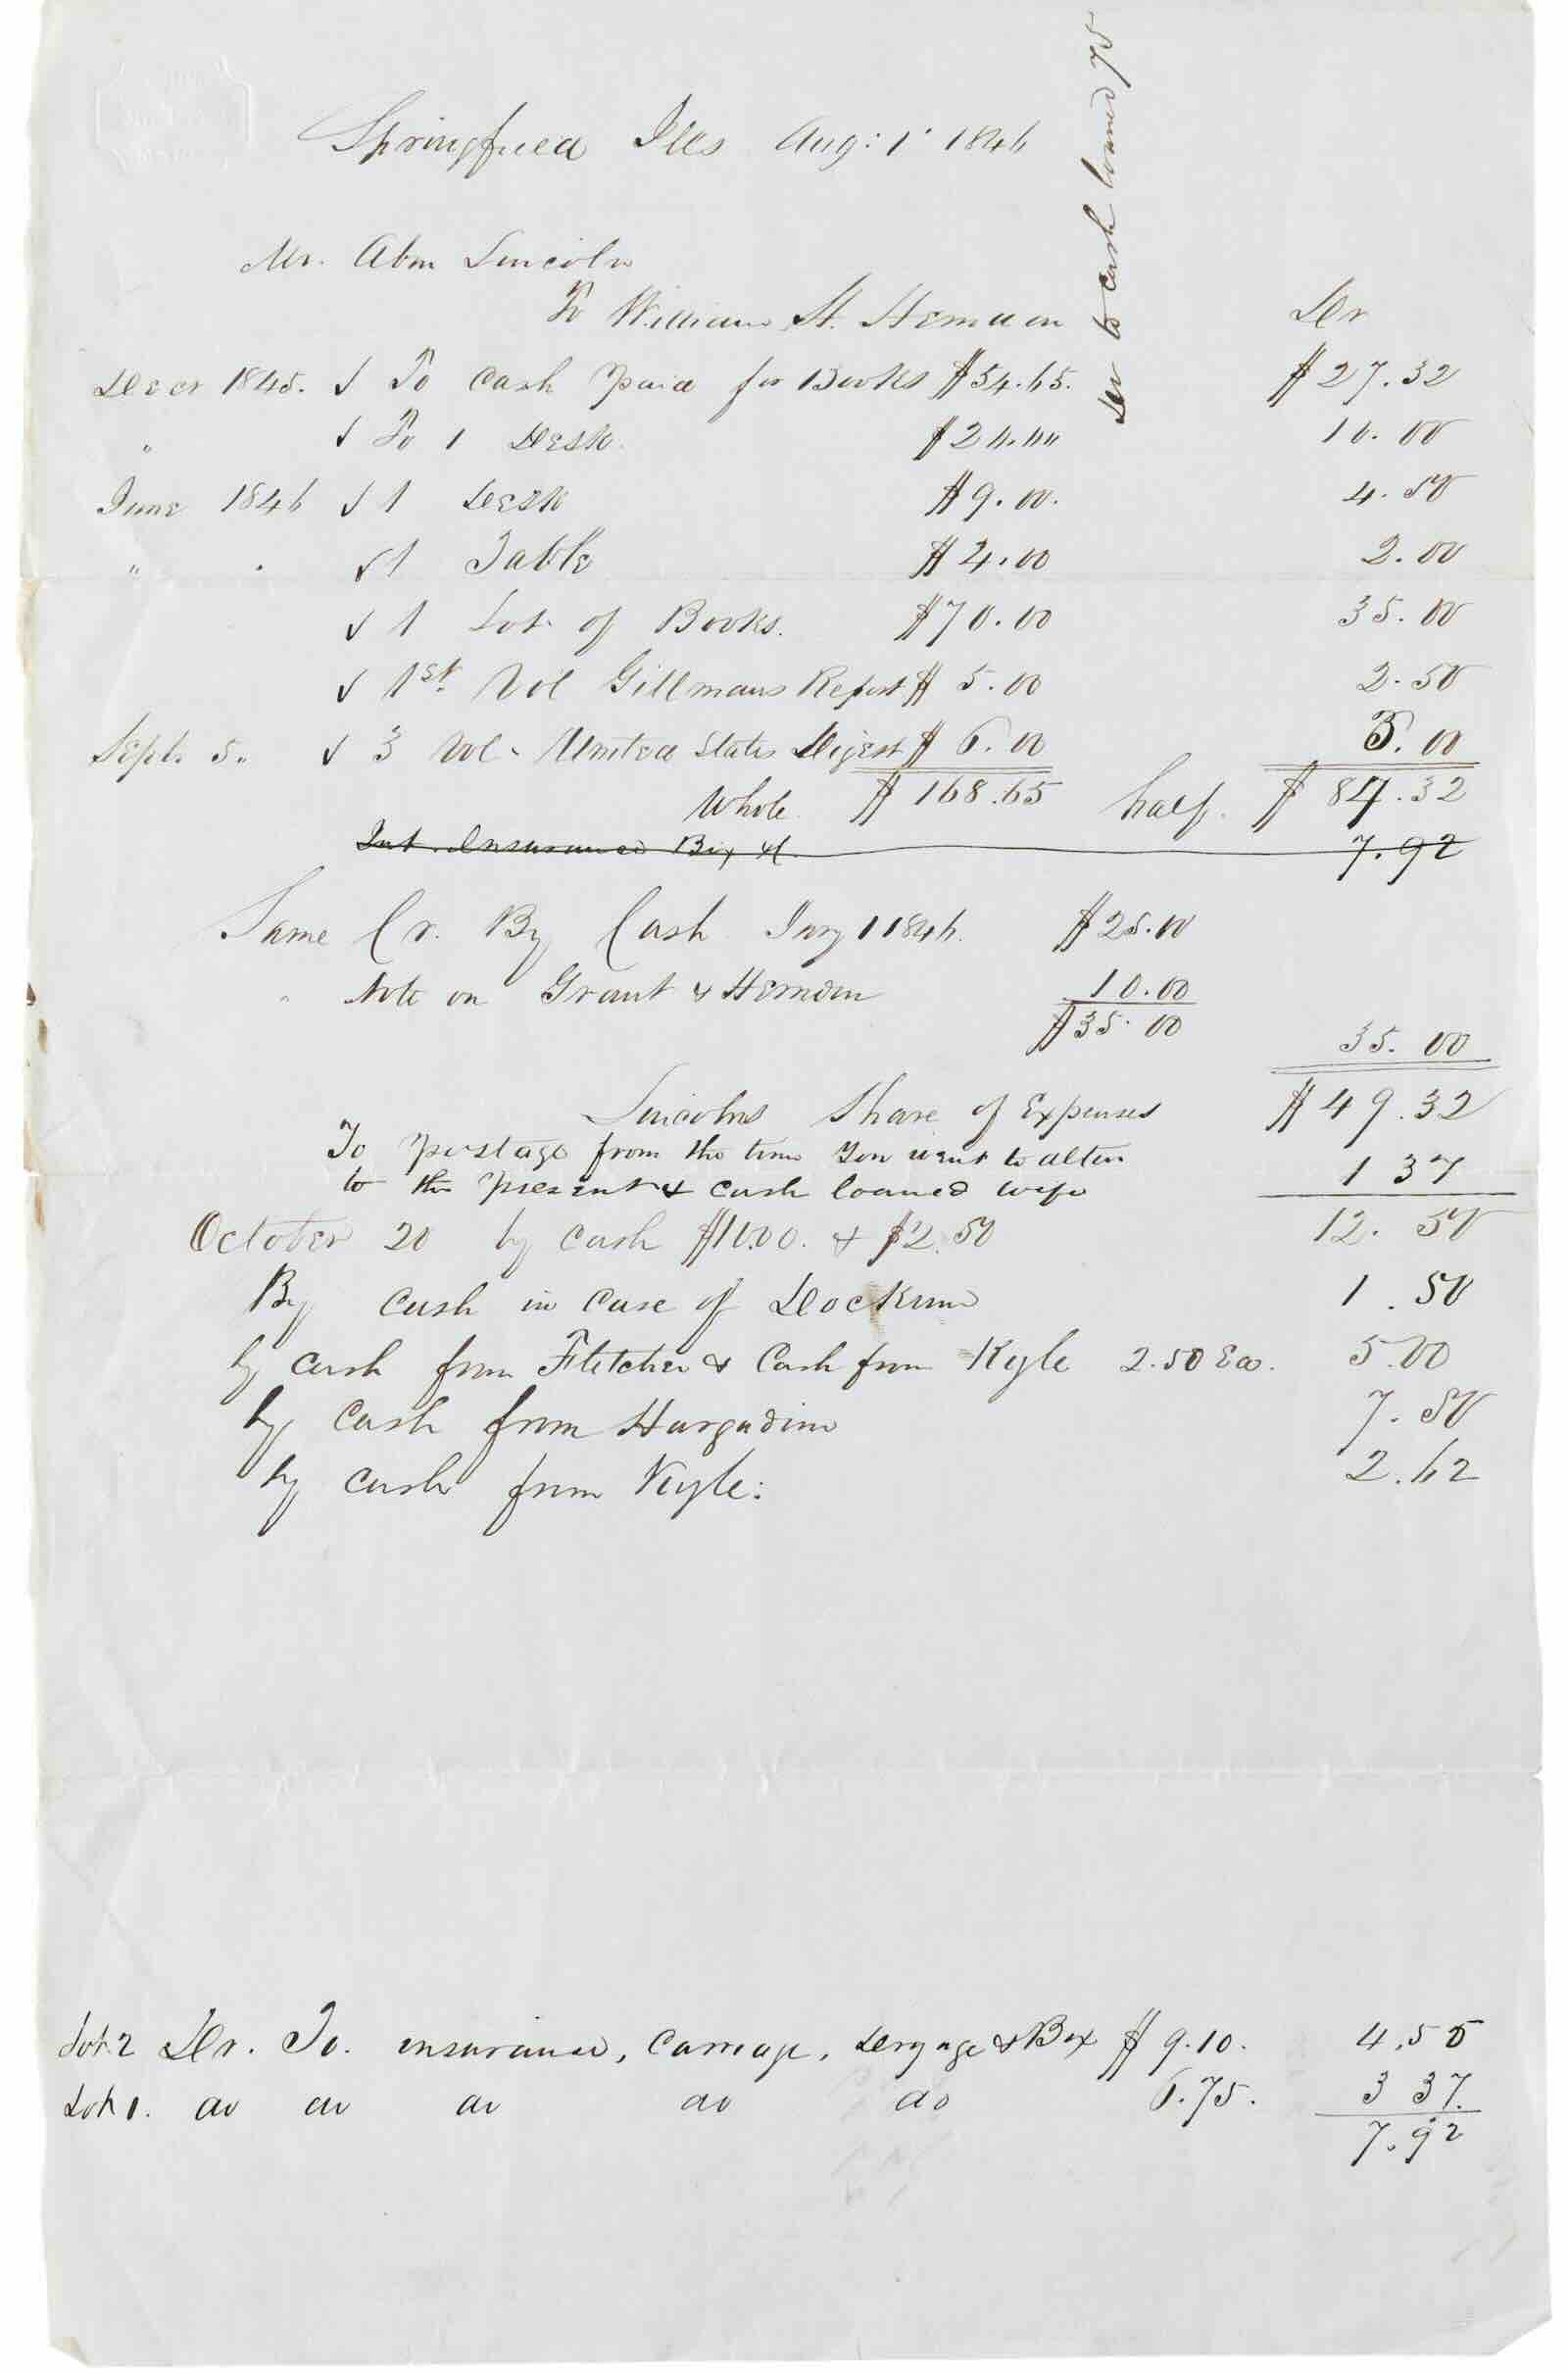 Springfield Ills Aug: 1' 1846
Mr. Abm Lincoln
To William H. Herndon Dr
Decr 1845. √ To Cash paid for Books $54.65. $27.32
" √ To 1 Desk. $20.00 10.00
June 1846 √ 1 Desk $9.00. 4.50
" . √ 1 Table $4.00 2.00
√ 1 Lot of Books. $70.00 35.00
√ 1st Vol Gillmans Report $5.00 2.50
Sept. 5.. √ 3 Vol- United States Digest $6.00 3.00
Whole $168.65 half. $84.32
Int. Insurance Box &c. 7.92
Same Cr. By Cash Jany 1 1846. $25.00
" Note on Grant & Herndon 10.00
$35.00
35.00
Lincolns Share of Expenses $49.32
To postage from the time you went to alton
to the present & cash loaned wife 1 37
October 20 by cash $10.00. & $2.50 12.50
By Cash in case of Dockum 1.50
by cash from Fletcher & Cash from Kyle 2.50 Ea. 5.00
by Cash from Hargadine 7.50
by cash from Kyle: 2.62
Dr to cash loaned 75
Lot.2 Dr. To. insurance, Carriage, Drayage & Box $9.10. 4.55
Lot 1. do do do do do 6.75. 3 37.
7.92